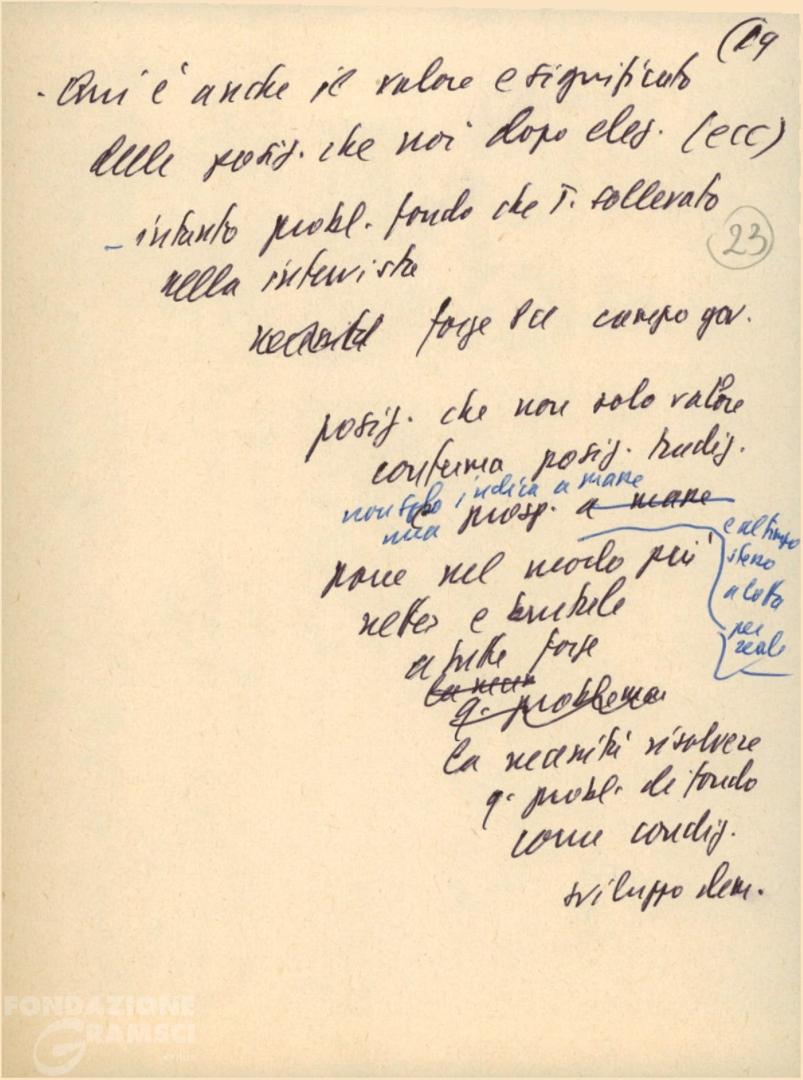 (19
- Qui è anche il valore e significato
delle posiz. che noi dopo elez. (ecc)
23
- intanto probl. fondo che T. sollevato
nella intervista
necessità forze del campo gov.
posiz. che non solo valore
conferma posiz. tradiz.
non solo indica a mare
ma
e prosp. a mare
e al tempo
stesso
a lotta
per
reale
pone nel modo più
netto e brutale
a tutte forze
la necess
q. problema
la necessità risolvere
q. probl. di fondo
come condiz.
sviluppo dem.
FONDAZIONE
GRAMSCI